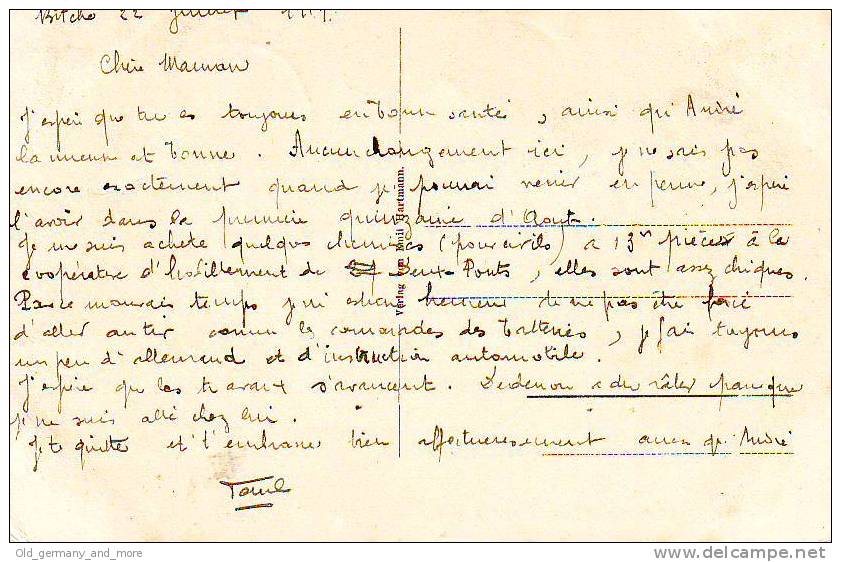 Bitche 22 juillet
Chère Maman
J'espère que tu es toujours en bonne santé, ainsi qu'André
la mienne est bonne. Aucun changement ici, je ne sais pas
encore exactement quand je pourrai venir en perme, j'espère
l'avoir dans la première quinzaine d'Aout.
Je me suis acheté quelques chemises (pour civils) a 13 pièces à la
coopérative d'habillement de Deux-Ponts, elles sont assez chiques.
Par ce mauvais temps je m'estime heureux de ne pas être forcé
d'aller au tir comme les comandes des batteries, je fais toujours
un peu d'allemand et d'instruction automobile.
J'espère que les travaux s'avancent. a du râler parce que
je ne suis allé chez lui.
Je te quitte et t'embrasse bien affectueusement ainsi qu'André
Paul
Verlag von Emil Hartmann.
Old_germany_and_more
delcampe.net